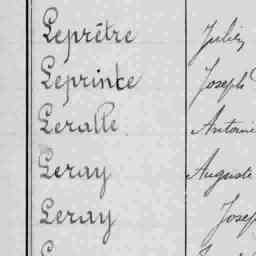 Leprêtre Julien
Leprince Joseph
Leralle Antoine
Leray Auguste
Leray Josep